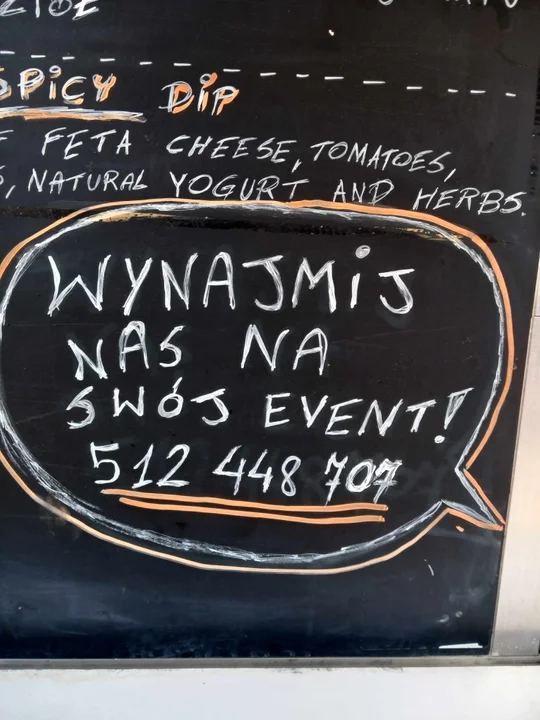 SPICY DIP
FETA CHEESE, TOMATOES,
, NATURAL YOGURT AND HERBS.
WYNAJMIJ
NAS NA
SWÓJ EVENT!
512 448 707